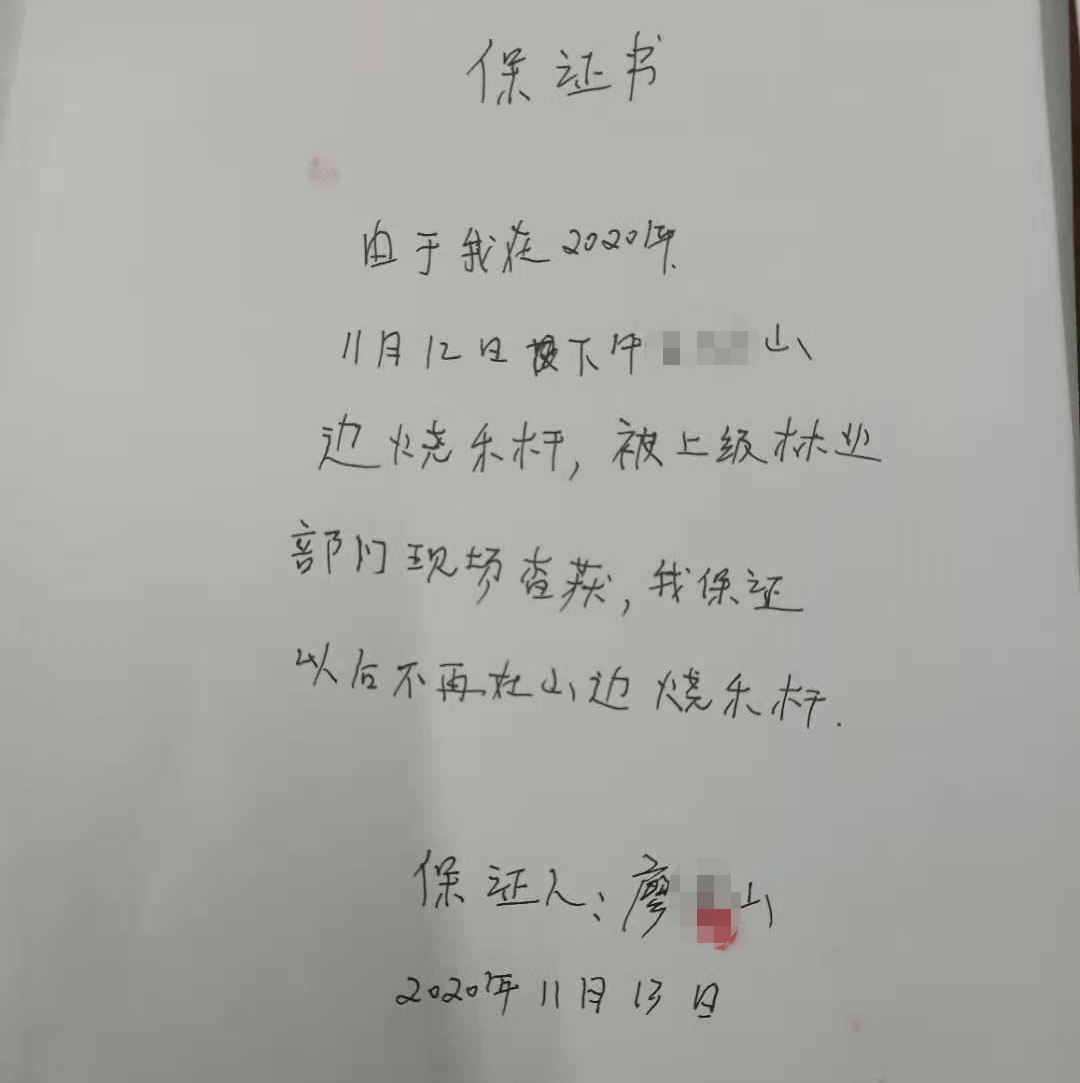 保证书
由于我在2020年
11月12日下午 山
边烧禾杆，被上级林业
部门现场查获，我保证
以后不再在山边烧禾杆.
保证人：廖 山
2020年11月13日